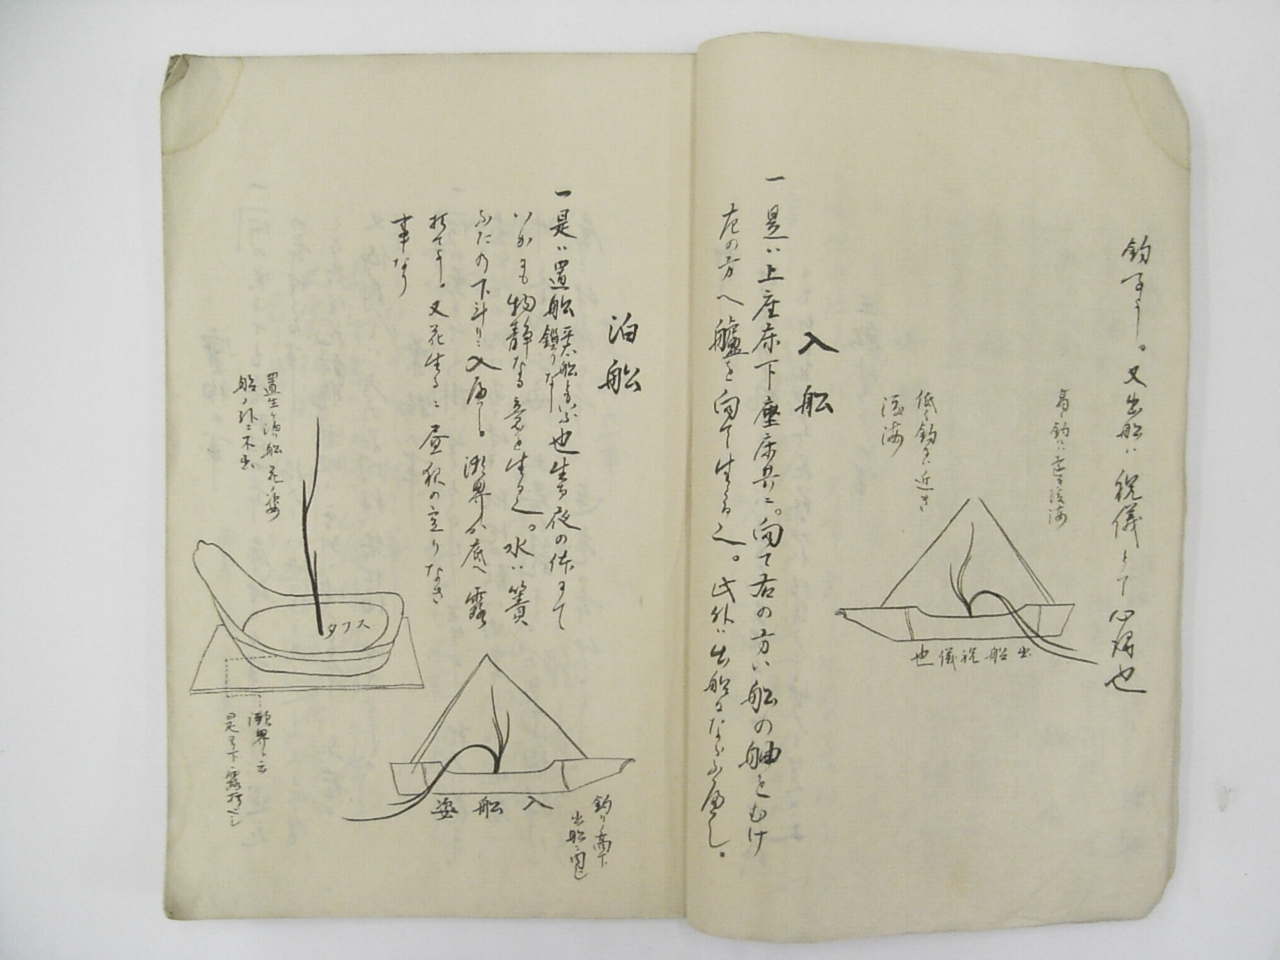 釣すべし。又出船ハ祝儀として心得也
高く釣ハ遠き渡海
低く釣るハ近き
渡海
出船祝儀也
入船
一是ハ上座床下座床共ニ。向て右の方江船の舳をむけ
左の方へ艫を向て生る也。此外ハ出船にならふべし。
泊船
一是ハ置船
也生方夜の体にて
いかにも物静なる意を生る也。水ハ簀
ふたの下斗りニ入べし。瀬界か底へ露
打べし。又花生るニ昼夜の定りなき
事なり
置生泊船花姿
船ノ外ニ不出
タフス
瀬界と云
是より下露打べし
入船姿
釣り高下
出船ニ同し